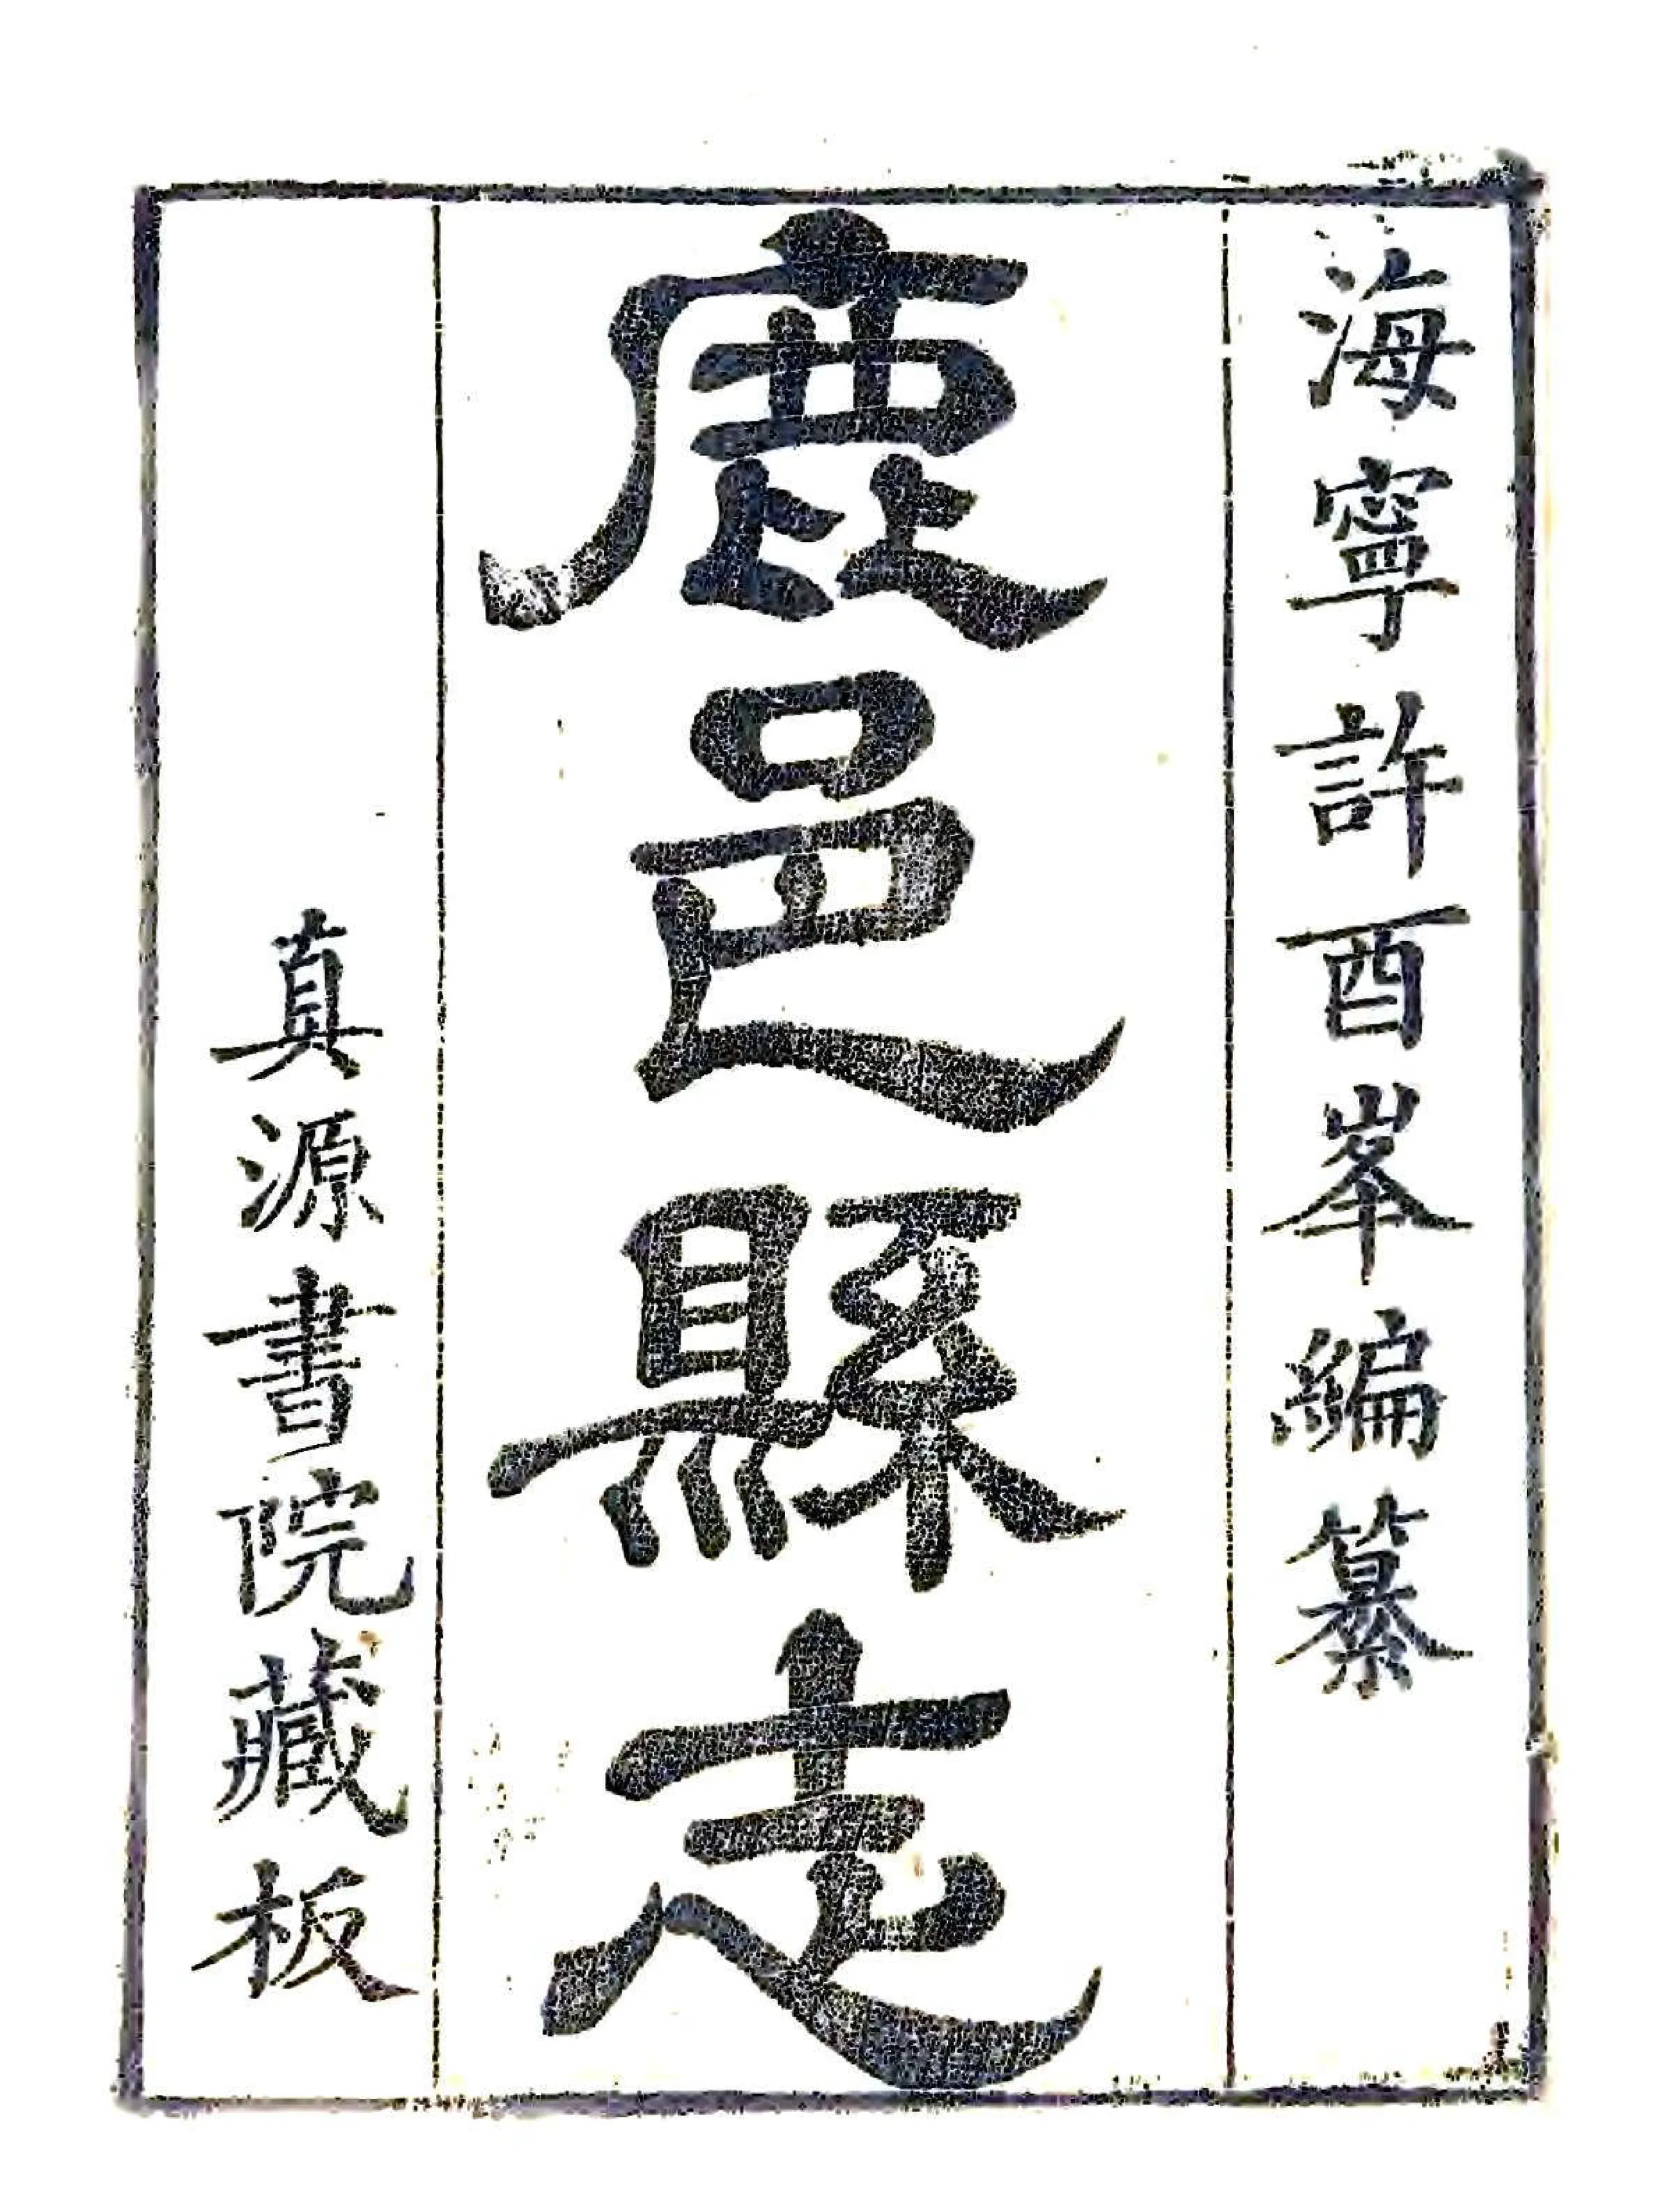 海寧許酉峯編纂
鹿邑縣志
真源書院藏板